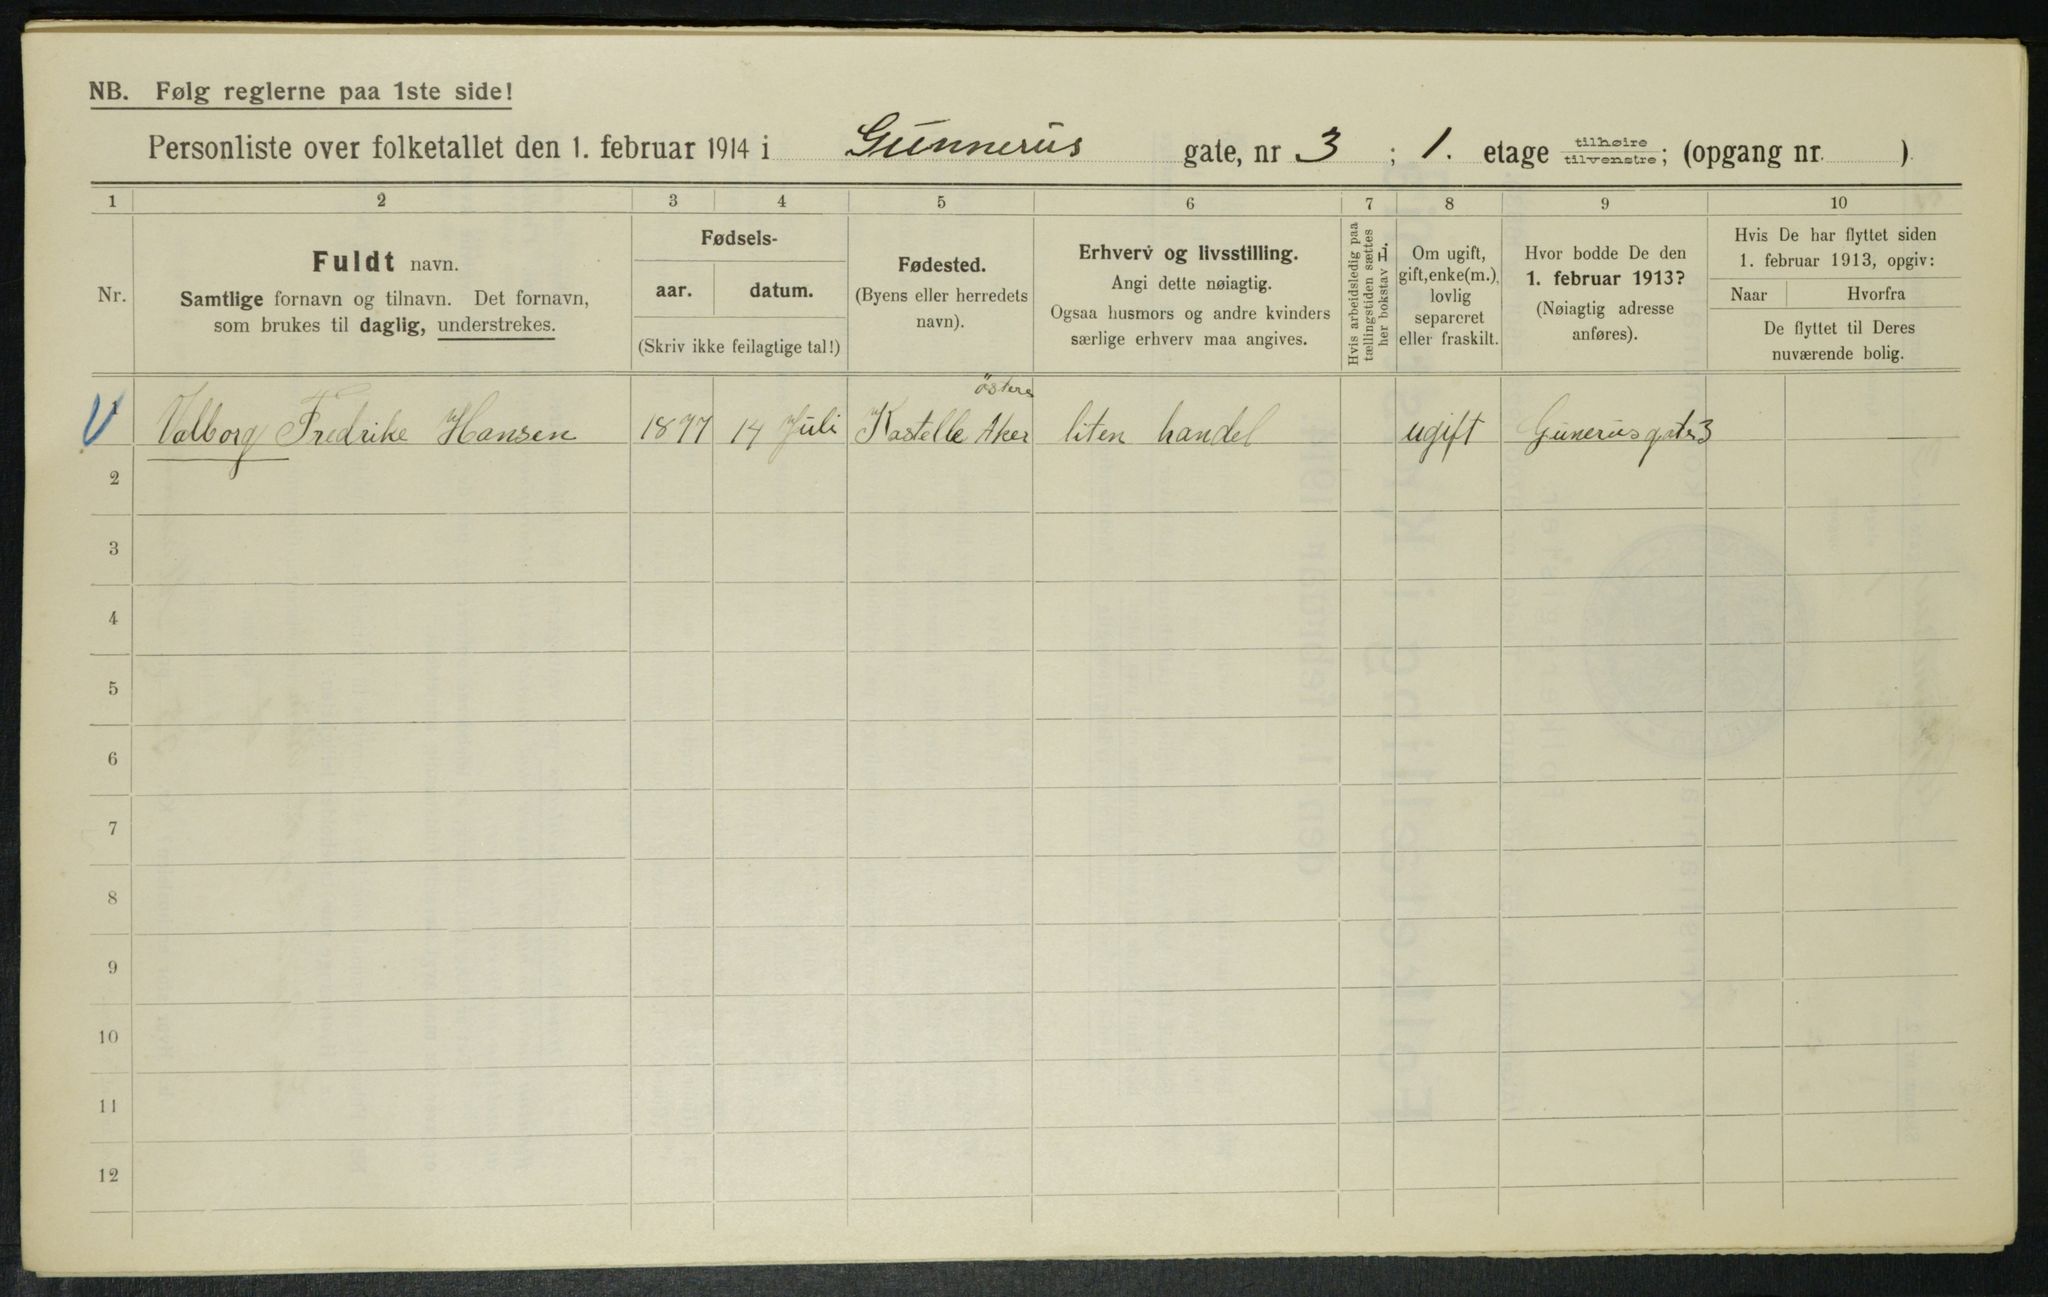 NB. Følg reglerne paa 1ste side!
Personliste over folketallet den 1. februar 1914 i Gunnerus gate, nr 3 ; 1. etage tilhøire tilvenstre; (opgang nr. )
1 2 3 4 5 6 7 8 9 10
Nr.
Fuldt navn.
Samtlige fornavn og tilnavn. Det fornavn,
som brukes til daglig, understrekes.
Fødsels-
aar. datum.
(Skriv ikke feilagtige tal!)
Fødested.
(Byens eller herredets
navn).
Erhverv og livsstilling.
Angi dette nøiagtig.
Ogsaa husmors og andre kvinders
særlige erhverv maa angives.
Hvis arbeidsledig paa
tællingstiden sættes
her bokstav L.
Om ugift,
gift, enke(m.),
lovlig
separeret
eller fraskilt.
Hvor bodde De den
1. februar 1913?
(Nøiagtig adresse
anføres).
Hvis De har flyttet siden
1. februar 1913, opgiv:
Naar Hvorfra
De flyttet til Deres
nuværende bolig.
östere
1 Valborg Fredrike Hansen 1877 14 Juli Kastelle Aker liten handel ugift Gunerusgate 3
2
3
4
5
6
7
8
9
10
11
12